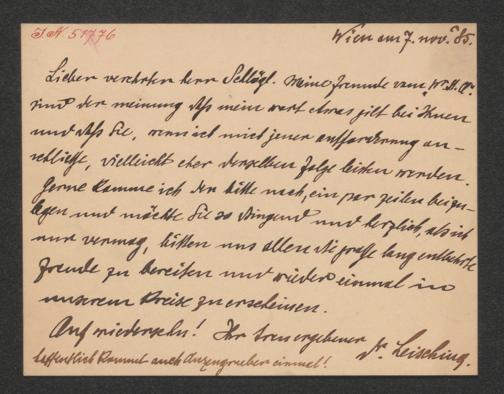 J.N. 51776
Wien am 7. nov. 85.
Lieber verehrter herr Schlögl. Meine freunde vom
sind der meinung daß mein wort etwas gilt bei Ihnen
und daß Sie, wenn ich mich jener aufforderung an-
schließe, vielleicht eher derselben folge leisten werden.
Gerne komme ich der bitte nach, ein par zeilen beizu-
legen und möchte Sie so dringend und herzlich, als ich
nur vermag, bitten uns allen die große lang entbehrte
freude zu bereiten und wieder einmal in
unserem kreise zu erscheinen.
Auf wiedersehn! Ihr treu ergebener
Dr. Leisching.
hoffentlich kommt auch Anzengruber einmal!